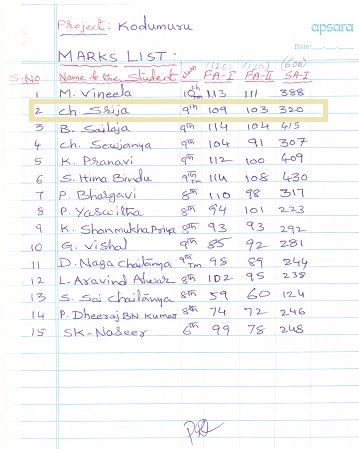 Project: Kodumuru
apsara
Date:
MARKS LIST:
(120) (120) (600)
S.NO Name of the Student FA-I FA-II SA-I
1 M. Vineela 10th Tm 113 111 388
2 Ch. Srija 9th 109 103 320
3 B. Sailaja 9th 114 104 415
4 Ch. Sowjanya 9th 104 91 307
5 K. Pranavi 9th 112 100 409
6 S. Hima Bindu 9th 114 108 430
7 P. Bhargavi 8th 110 98 317
8 P. Yaswitha 8th 94 101 223
9 K. Shanmukha Priya 8th 93 93 292
10 G. Vishal 9th 85 92 281
11 D. Naga Chaitanya 9th Tm 98 89 244
12 L. Aravind 8th 102 95 238
13 S. Sai Chaitanya 8th 59 60 124
14 P. Dheeraj BN Kumar 8th 74 72 246
15 SK. Naseer 6th 99 78 248